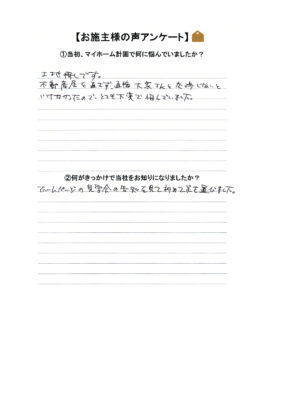 【お施主様の声アンケート】
①当初、マイホーム計画で何に悩んでいましたか？
土地探しです。
不動産屋を通さず、直接大家さんと交渉しないと
いけなかったので、とても不安で悩んでいました。
②何がきっかけで当社をお知りになりましたか？
ホームページの見学会の告知を見て初めて足を運びました。